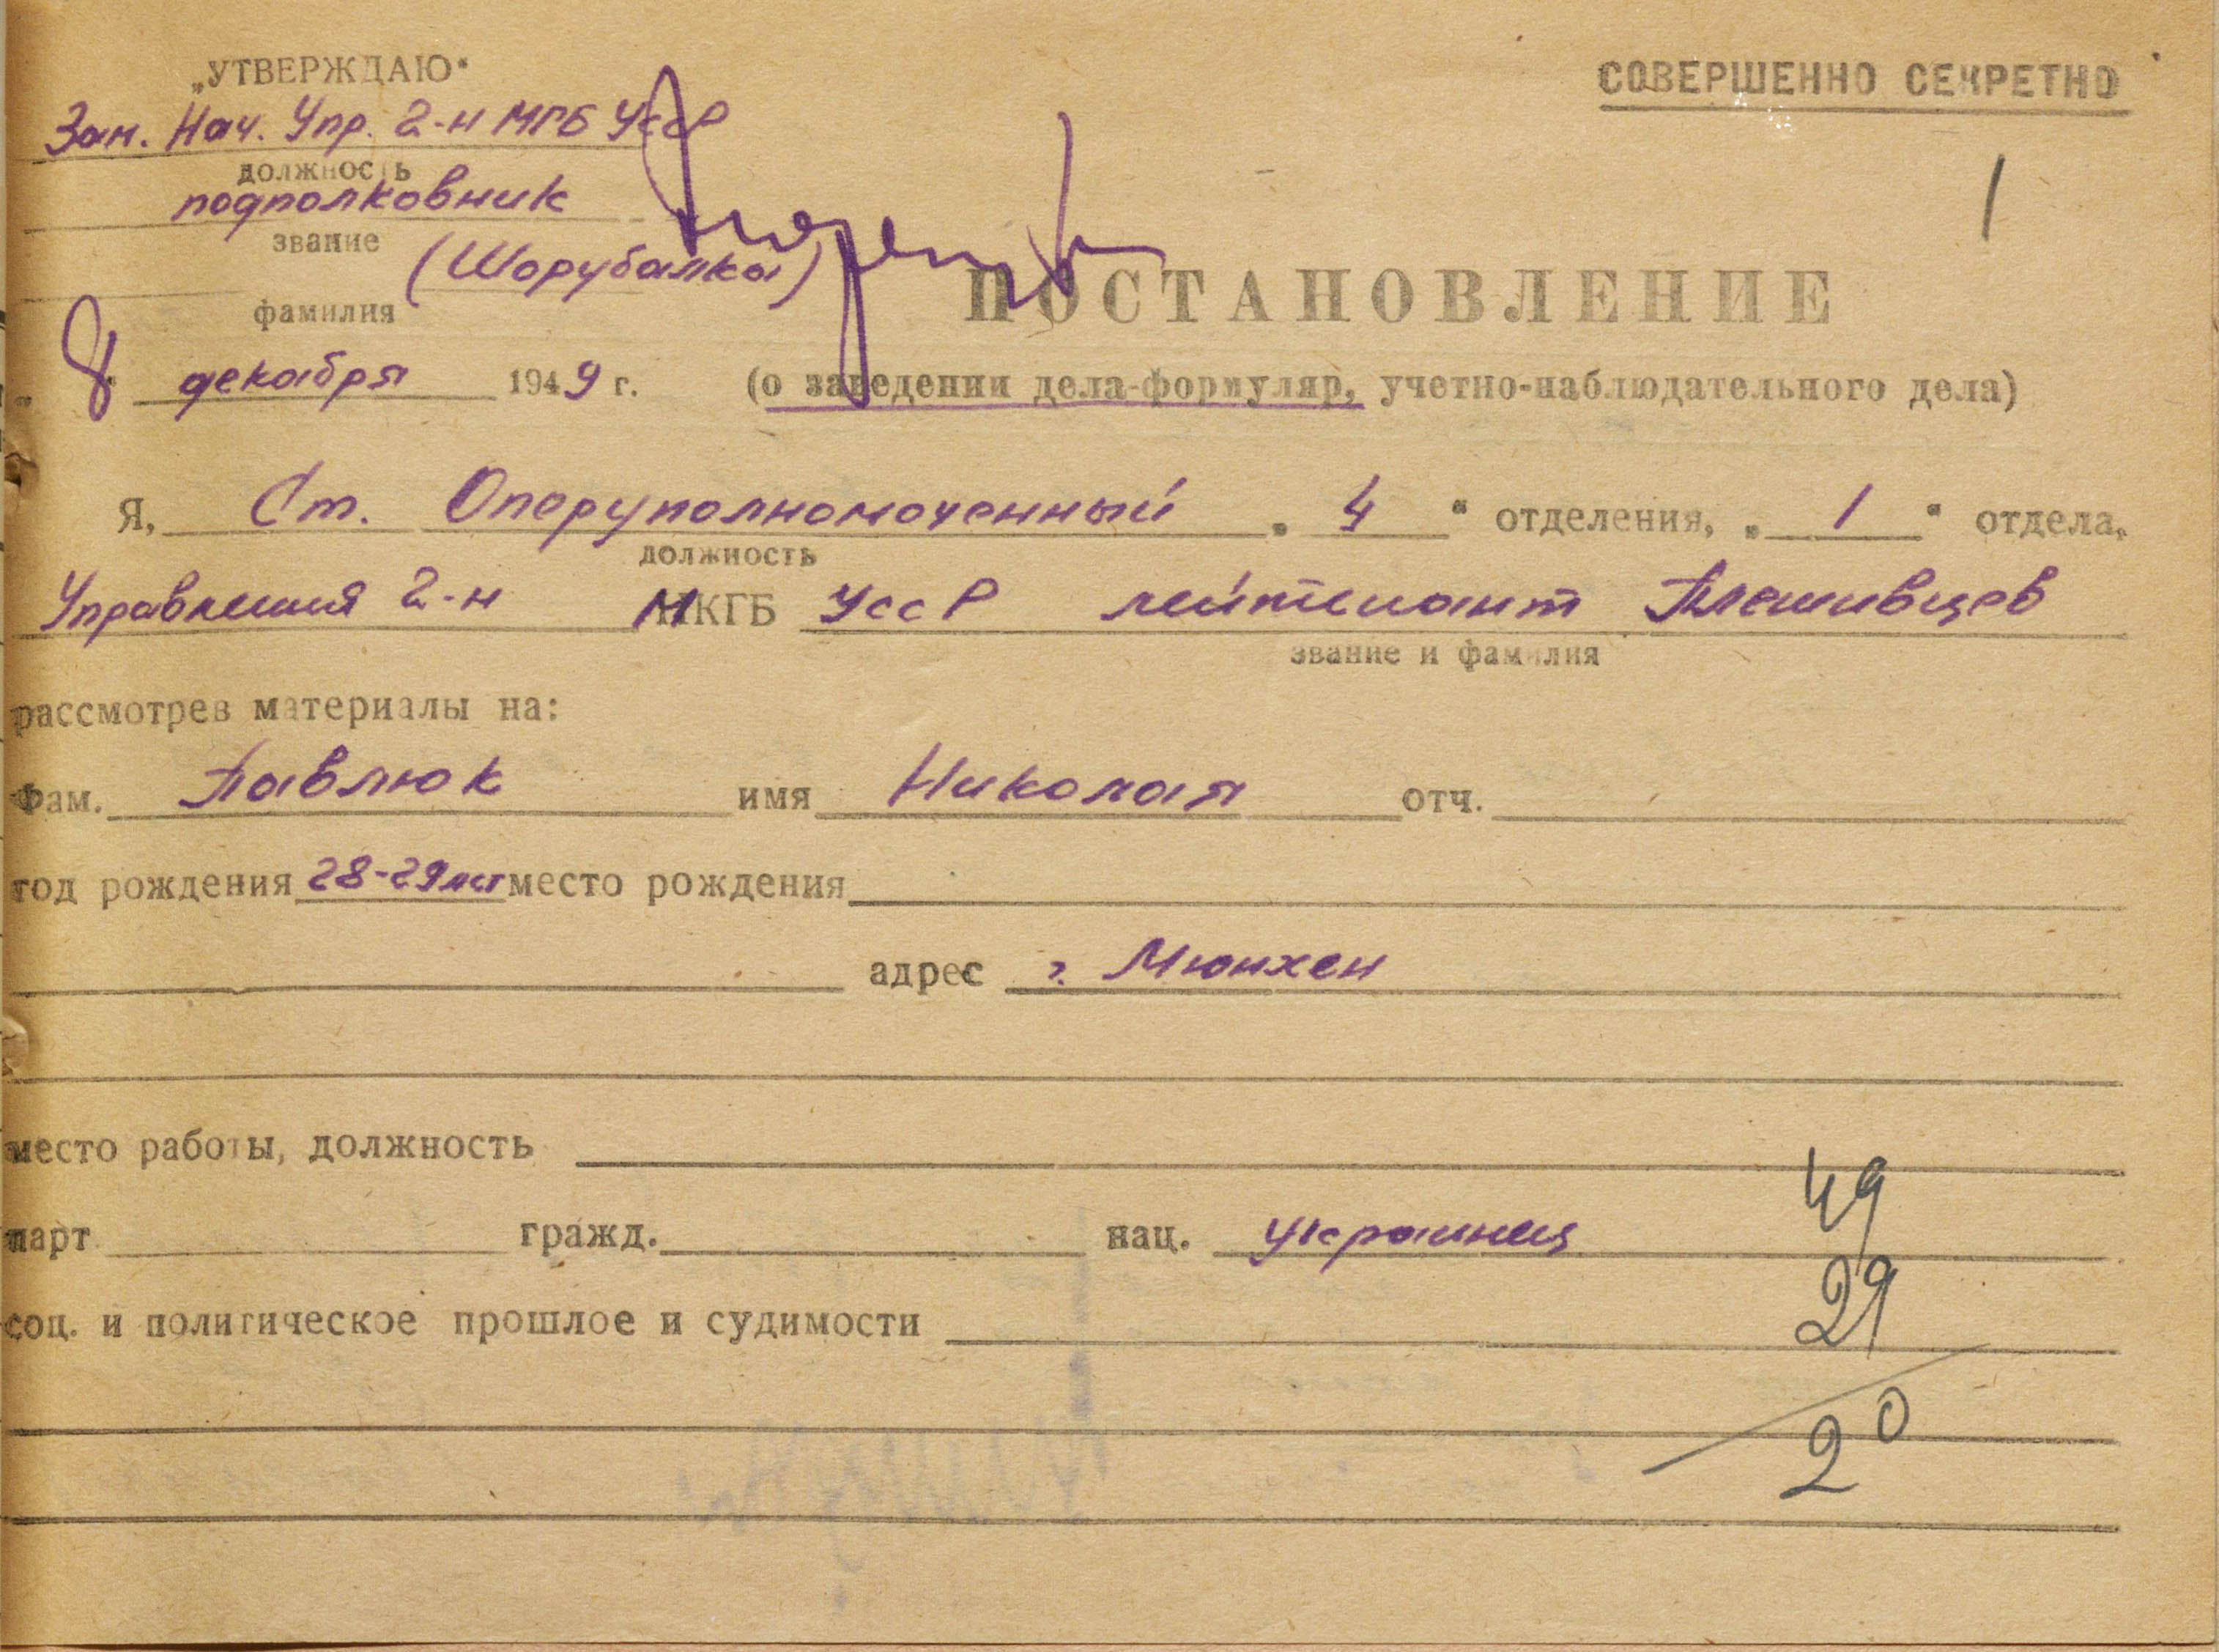 „УТВЕРЖДАЮ“
СОВЕРШЕННО СЕКРЕТНО
Зам. Нач. Упр. 2-н МГБ УССР
должность
1
подполковник
звание
(Шорубалка)
фамилия
ПОСТАНОВЛЕНИЕ
„8“ декабря 1949 г. (о заведении дела-формуляр, учетно-наблюдательного дела)
Я, Ст. Оперуполномоченный „4“ отделения, „1“ отдела,
должность
Управления 2-н МГБ УССР лейтенант Плешивцев
звание и фамилия
рассмотрев материалы на:
Фам. Павлюк имя Николая отч.
год рождения 28-29 лет место рождения
адрес г. Мюнхен
место работы, должность
парт гражд. нац. украинец
49
соц. и политическое прошлое и судимости
29
20